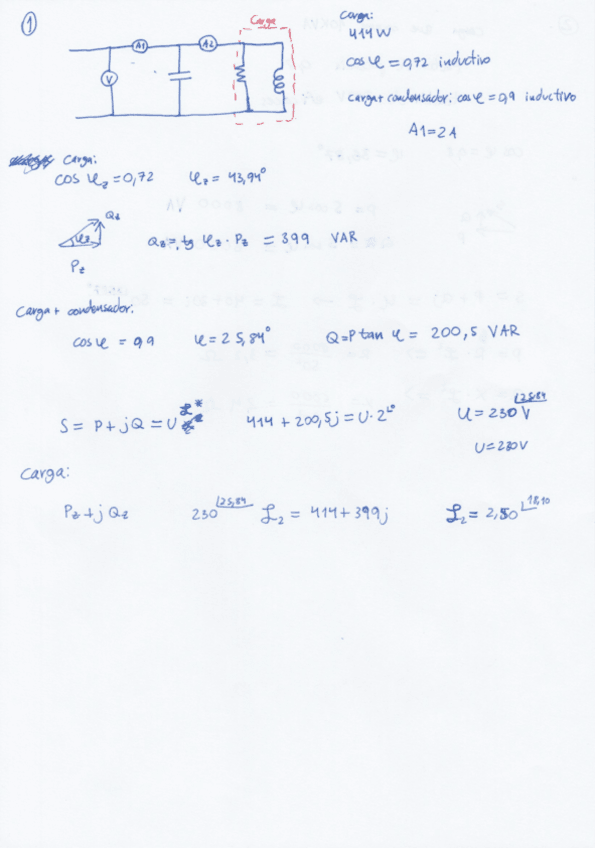 1
Carga
A1
A2
V
Carga:
414W
cos φ = 0,72 inductivo
carga + condensador: cos φ = 0,9 inductivo
A1 = 2A
Carga:
cos φz = 0,72 φz = 43,94°
Qz
φz
Pz
Qz = tg φz · Pz = 399 VAR
Carga + condensador:
cos φ = 0,9 φ = 25,84° Q = P tan φ = 200,5 VAR
S = P + jQ = U I* 414 + 200,5j = U · 2∟0° U = 230∟25,84 V
U = 230V
Carga:
Pz + j Qz 230∟25,84 I2 = 414 + 399j I2 = 2,50∟18,10